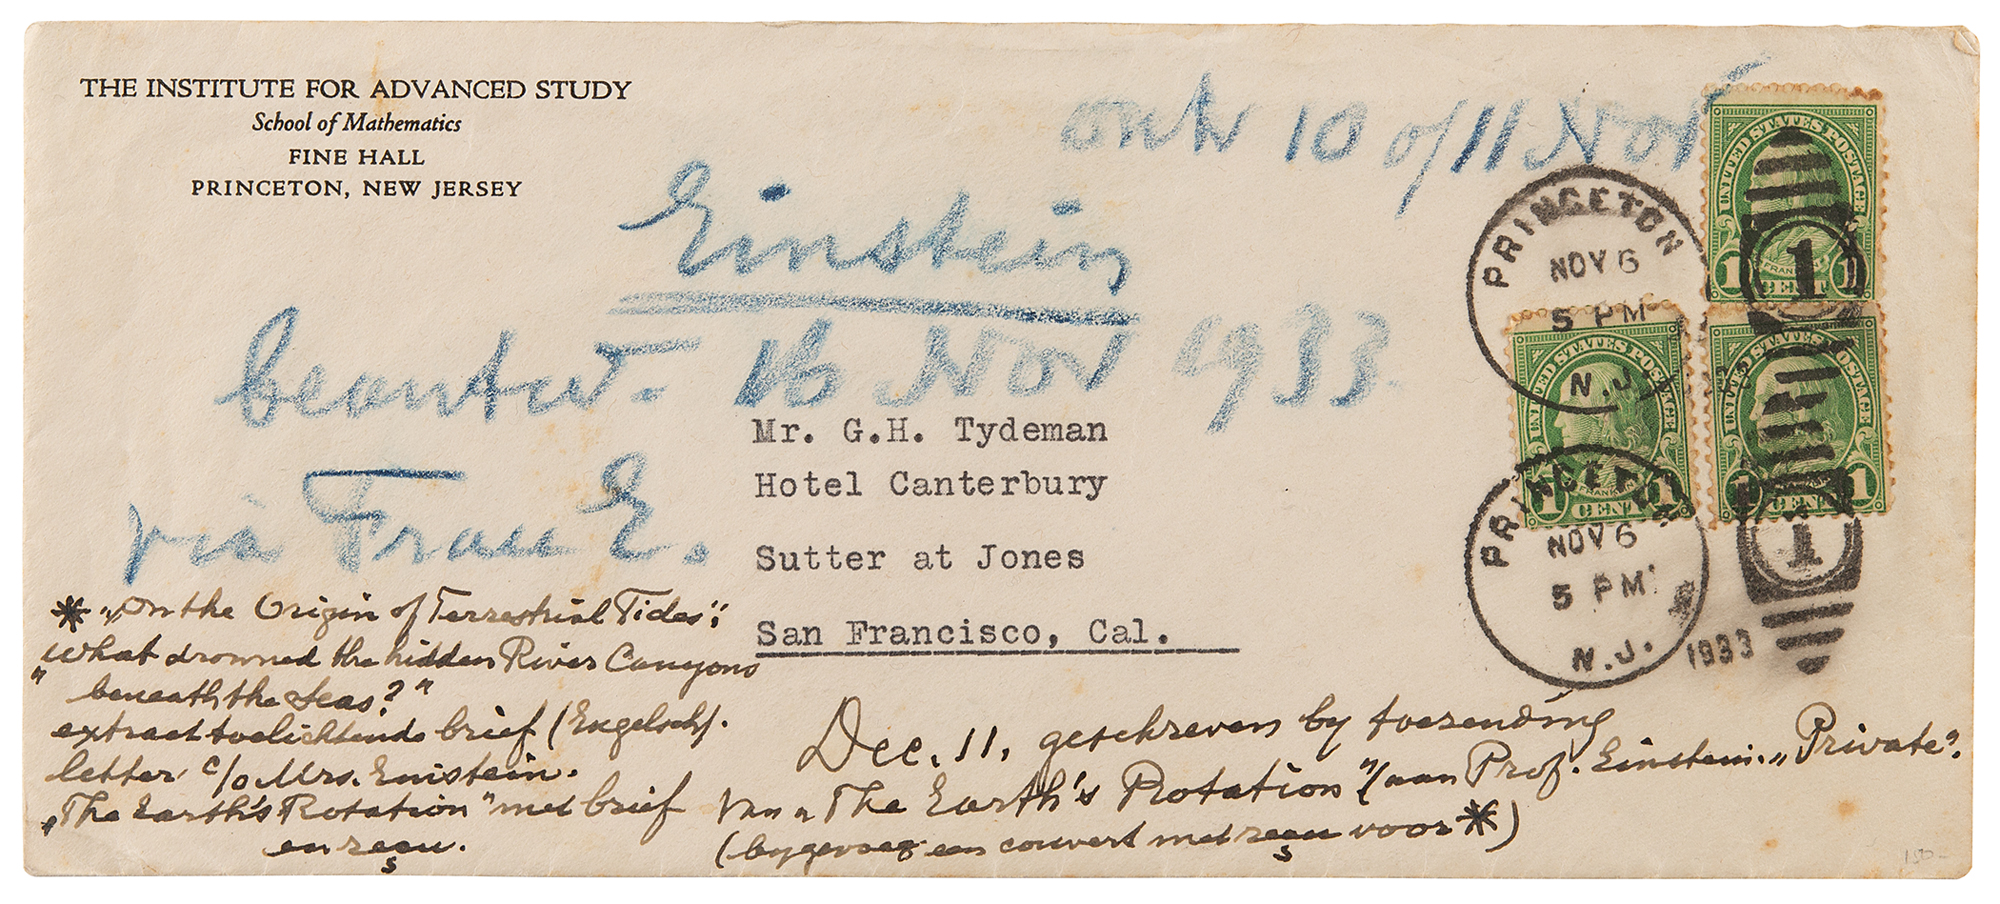 THE INSTITUTE FOR ADVANCED STUDY
School of Mathematics
FINE HALL
PRINCETON, NEW JERSEY
ontv 10 of 11 Nov
Einstein
beantw. 16 Nov 1933
via Frau E.
PRINCETON
NOV 6
5 PM
N.J.
UNITED STATES POSTAGE
FRANKLIN
1 CENT 1
1
UNITED STATES POSTAGE
FRANKLIN
1 CENT 1
UNITED STATES POSTAGE
1 CENT 1
PRINCETON
NOV 6
5 PM
N.J.
1933
1
Mr. G.H. Tydeman
Hotel Canterbury
Sutter at Jones
San Francisco, Cal.
* „On the Origin of Terrestrial Tides":
"What drowned the hidden River Canyons
beneath the Seas?"
extract toelichtende brief (Engelsch).
letter c/o Mrs. Einstein.
„The Earth's Rotation" met brief
en
Dec. 11, geschreven by toezending
van „The Earth's Rotation" aan Prof. Einstein. „Private".
(bygevoeg een couvert met voor *)